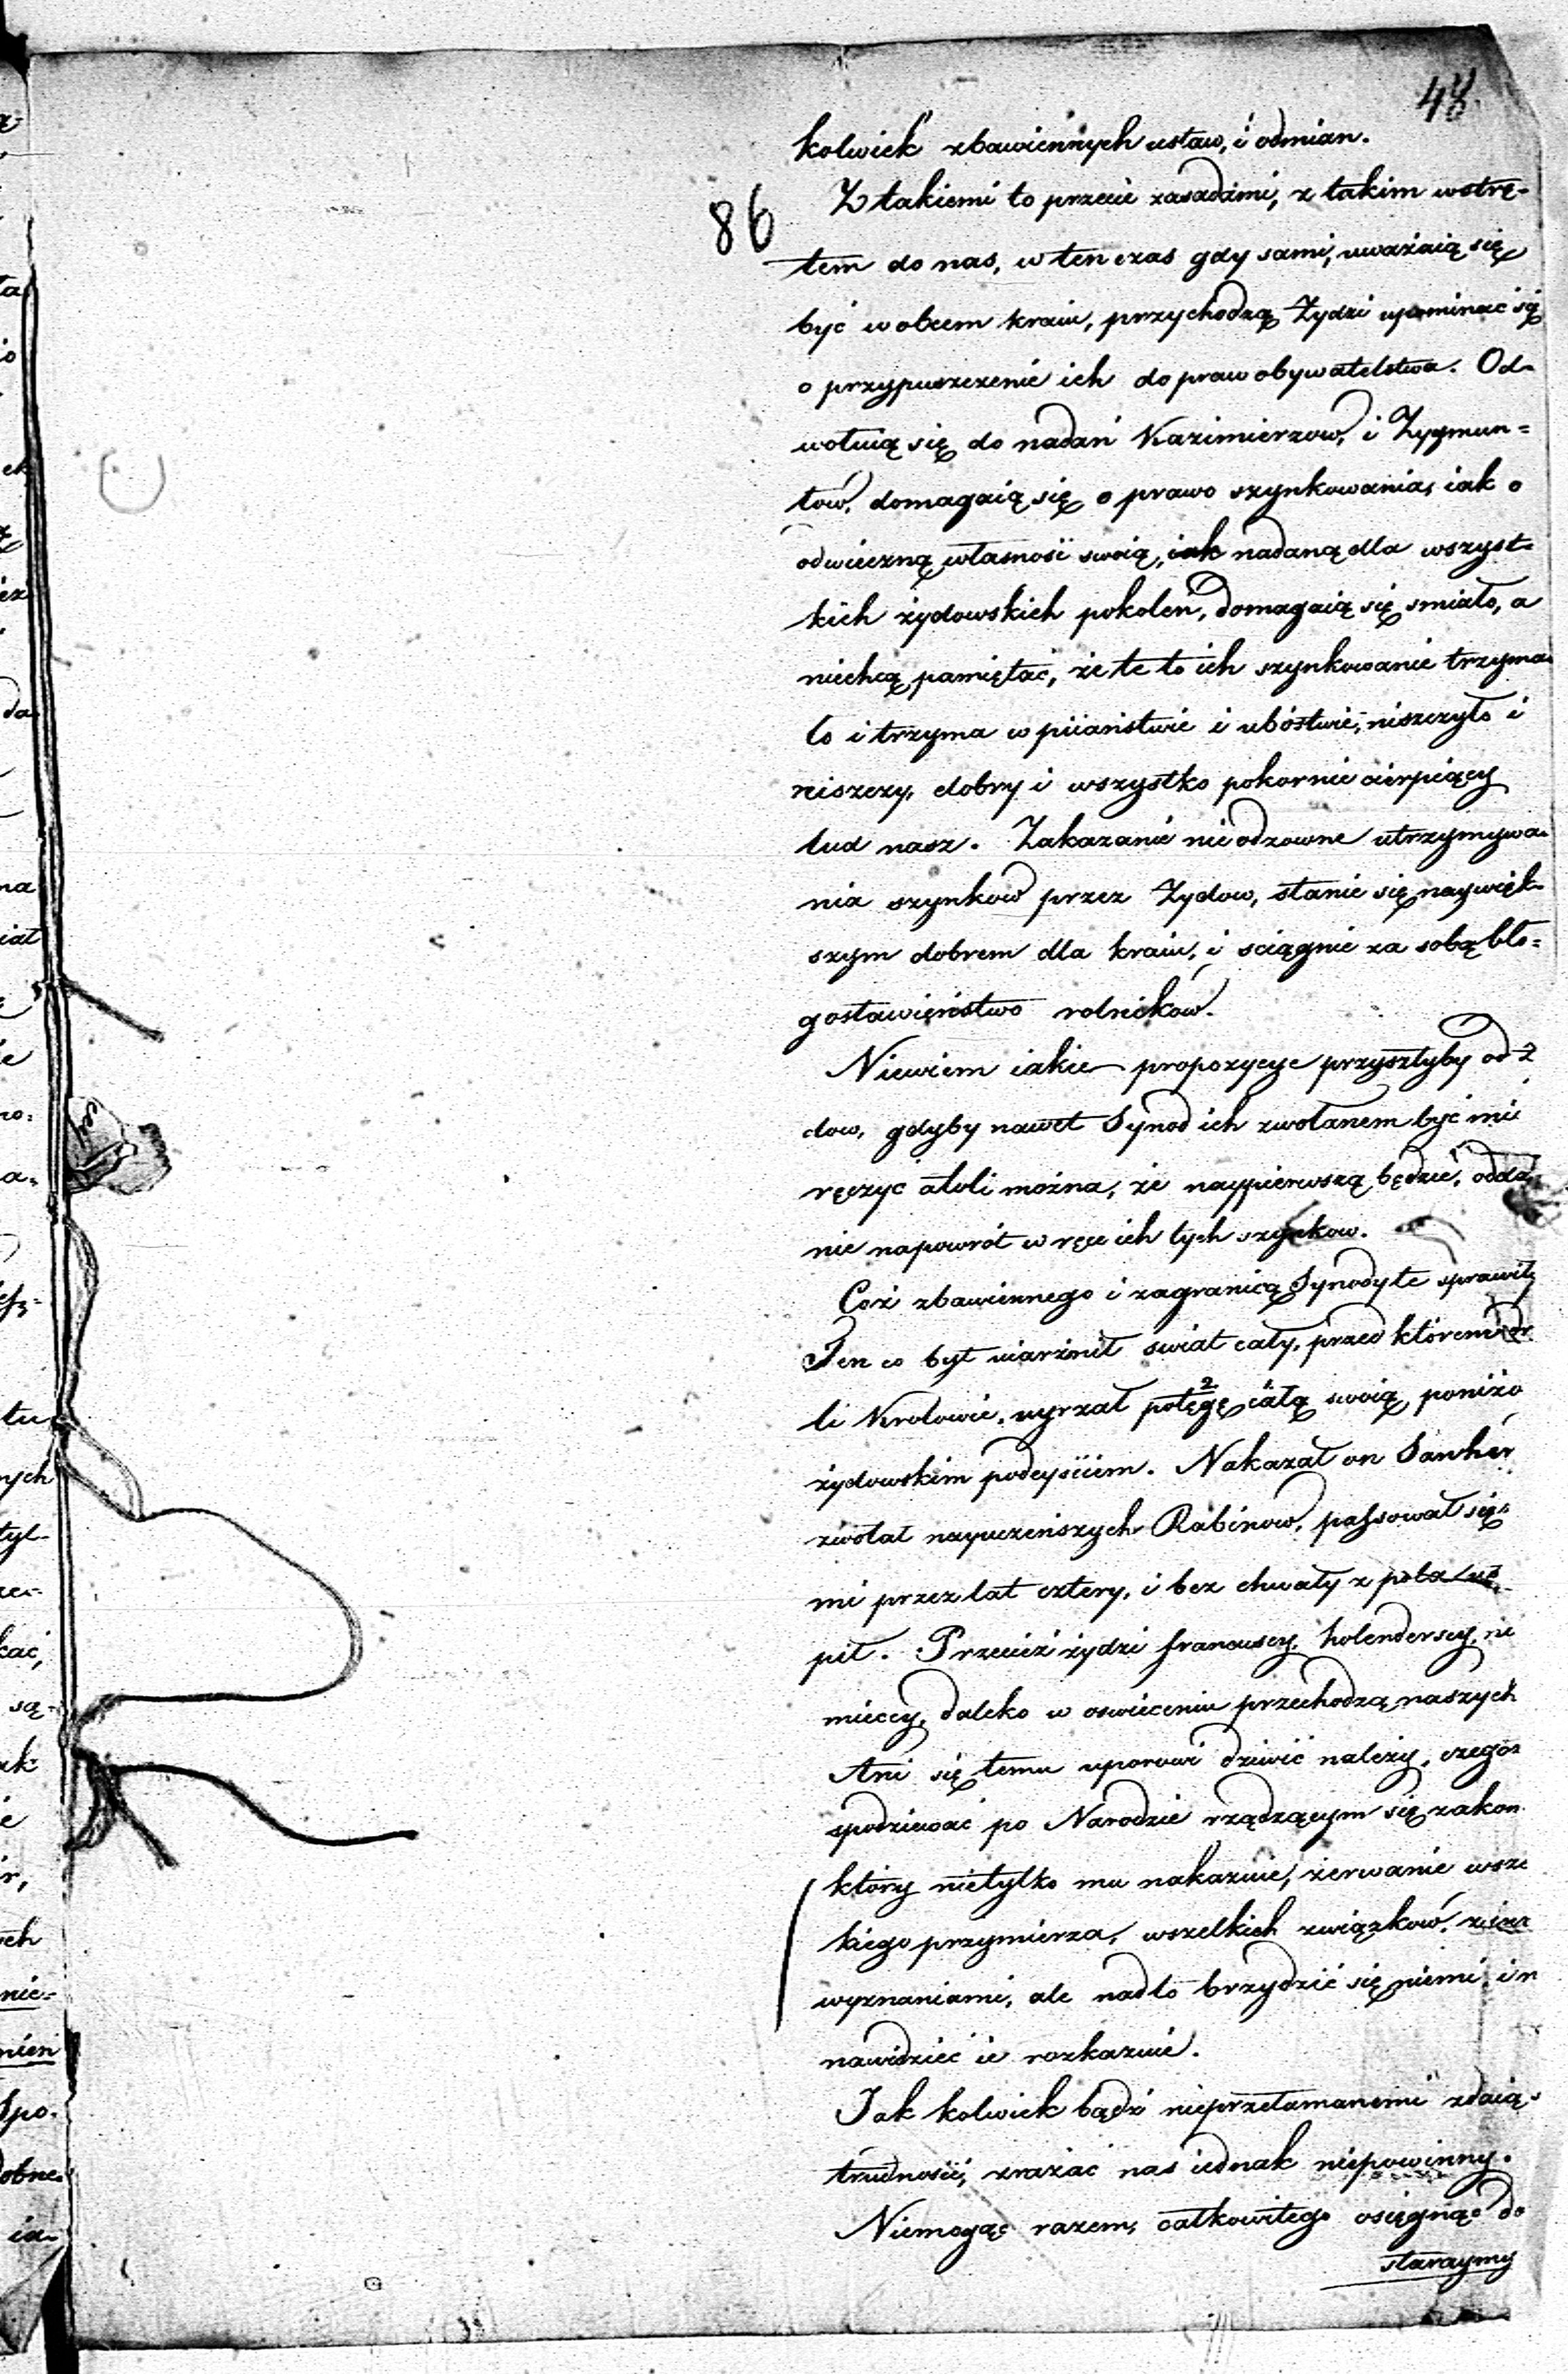 48.
kolwiek zbawiennych ustaw, i odmian.
86
Z takiemi to przecie zasadami, z takim wstrę-
tem do nas, w ten czas gdy sami, uważaią się
być w obcem kraiu, przychodzą Żydzi upominać się
o przypuszczenie ich do praw obywatelstwa. Od-
wołuią się do nadań Kazimierzow, i Zygmun=
tów, domagaią się o prawo szynkowania, iak o
odwieczną własność swoią, iak nadaną dla wszyst-
kich żydowskich pokoleń, domagaią się smiało, a
niechcą pamiętać, że te to ich szynkowanie trzyma-
ło i trzyma w piiaństwie i ubóstwie, niszczyło i
niszczy, dobry i wszystko pokornie cierpiący
lud nasz. Zakazanie nieodzowne utrzymywa-
nia szynków przez Żydow, stanie się naywięk-
szym dobrem dla kraiu, i sciągnie za sobą bło=
gosławieństwo rolników.
Niewiem iakie propozycye przyszłyby od Ż
dow, gdyby nawet Synod ich zwołanem być mi
ręczyć atoli można, że naypierwszą będzie, odda
nie napowrót w ręce ich tych szynkow.
Coż zbawiennego i zagranicą Synody te sprawiły
Ten co był uiarzmił swiat cały, przed którem dr
li Krolowie, uyrzał potęgę całą swoią poniżo
żydowskim podeyściem. Nakazał on Sanher
zwołał nayuczeńszych Rabinow, passował się
mi przez lat cztery, i bez chwały z pola ustą
pił. Przecież żydzi francuscy, holenderscy, ni
mieccy, daleko w oswieceniu przechodzą naszych
Ani się temu uporowi dziwić należy, czegoż
spodziewać po Narodzie rządzącym się zakon
który nietylko mu nakazuie, zerwanie wsze
kiego przymierza, wszelkich związków, z inn
wyznaniami, ale nadto brzydzić się niemi, i n
nawidzieć ie rozkazuie.
Jak kolwiek bądź nieprzełamanemi zdaią s
trudności, zrażać nas iednak niepowinny.
Niemogąc razem, całkowitego osięgnąć do
staraymy